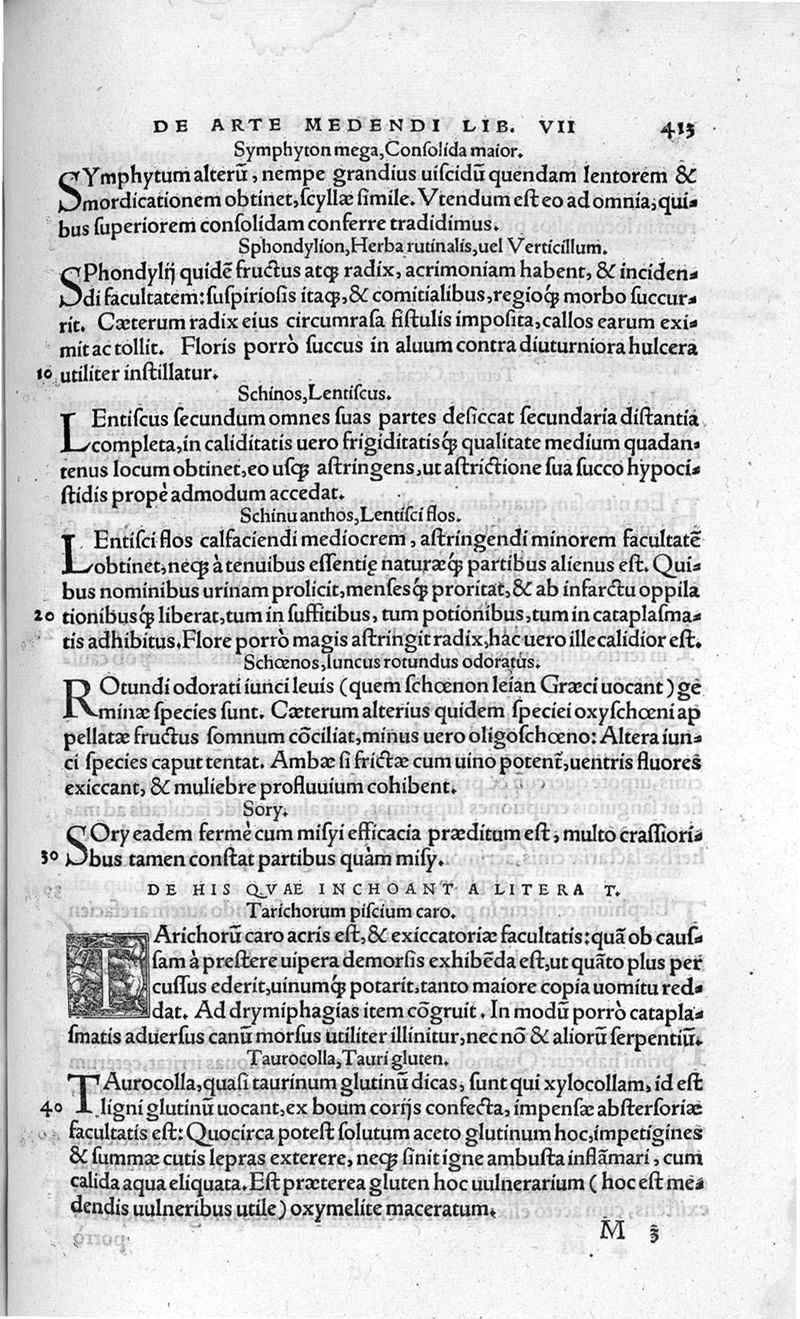 DE ARTE MEDENDI LIB. VII 413
Symphyton mega, Conſolida maior.
SYmphytum alterũ, nempe grandius uiſcidũ quendam lentorem &
mordicationem obtinet, ſcyllæ ſimile. Vtendum eſt eo ad omnia, qui-
bus ſuperiorem conſolidam conferre tradidimus.
Sphondylion, Herba rutinalis, uel Verticillum.
SPhondylij quidẽ fructus atqꝫ radix, acrimoniam habent, & inciden-
di facultatem: ſuſpirioſis itaqꝫ, & comitialibus, regioqꝫ́ morbo ſuccur-
rit. Cæterum radix eius circumraſa fiſtulis impoſita, callos earum exi-
mit ac tollit. Floris porrò ſuccus in aluum contra diuturniora hulcera
10 utiliter inſtillatur.
Schinos, Lentiſcus.
LEntiſcus ſecundum omnes ſuas partes deſiccat ſecundaria diſtantia
completa, in caliditatis uero frigiditatisqꝫ́ qualitate medium quadan-
tenus locum obtinet, eo uſqꝫ aſtringens, ut aſtrictione ſua ſucco hypoci-
ſtidis propè admodum accedat.
Schinu anthos, Lentiſci flos.
LEntiſci flos calfaciendi mediocrem, aſtringendi minorem facultatẽ
obtinet, neqꝫ à tenuibus eſſentię naturæqꝫ́ partibus alienus eſt. Qui-
bus nominibus urinam prolicit, menſesqꝫ́ proritat, & ab infarctu oppila
20 tionibusqꝫ́ liberat, tum in ſuffitibus, tum potionibus, tum in cataplaſma-
tis adhibitus. Flore porrò magis aſtringit radix, hac uero ille calidior eſt.
Schœnos, Iuncus rotundus odoratus.
ROtundi odorati iunci leuis (quem ſchœnon leian Græci uocant) gē
minæ ſpecies ſunt. Cæterum alterius quidem ſpeciei oxyſchœni ap
pellatæ fructus ſomnum cõciliat, minus uero oligoſchœno: Altera iun-
ci ſpecies caput tentat. Ambæ ſi frictæ cum uino potent᷑, uentris fluores
exiccant, & muliebre profluuium cohibent.
Sory.
SOry eadem fermè cum miſyi efficacia præditum eſt, multo craſſiori-
30 bus tamen conſtat partibus quàm miſy.
DE HIS QVAE INCHOANT A LITERA T.
Tarichorum piſcium caro.
TArichorũ caro acris eſt, & exiccatoriæ facultatis: quã ob cauſ-
ſam à preſtere uipera demorſis exhibẽda eſt, ut quãto plus per
cuſſus ederit, uinumqꝫ́ potarit, tanto maiore copia uomitu red-
dat. Ad drymiphagias item cõgruit. In modũ porrò catapla-
ſmatis aduerſus canũ morſus utiliter illinitur, nec nõ & aliorũ ſerpentiũ.
Taurocolla, Tauri gluten.
TAurocolla, quaſi taurinum glutinũ dicas, ſunt qui xylocollam, id eſt
40 ligni glutinũ uocant, ex boum corijs confecta, impenſæ abſterſoriæ
facultatis eſt: Quocirca poteſt ſolutum aceto glutinum hoc, impetigines
& ſummæ cutis lepras exterere, neqꝫ ſinit igne ambuſta inflãmari, cum
calida aqua eliquata. Eſt præterea gluten hoc uulnerarium (hoc eſt me-
dendis uulneribus utile) oxymelite maceratum.
M 3